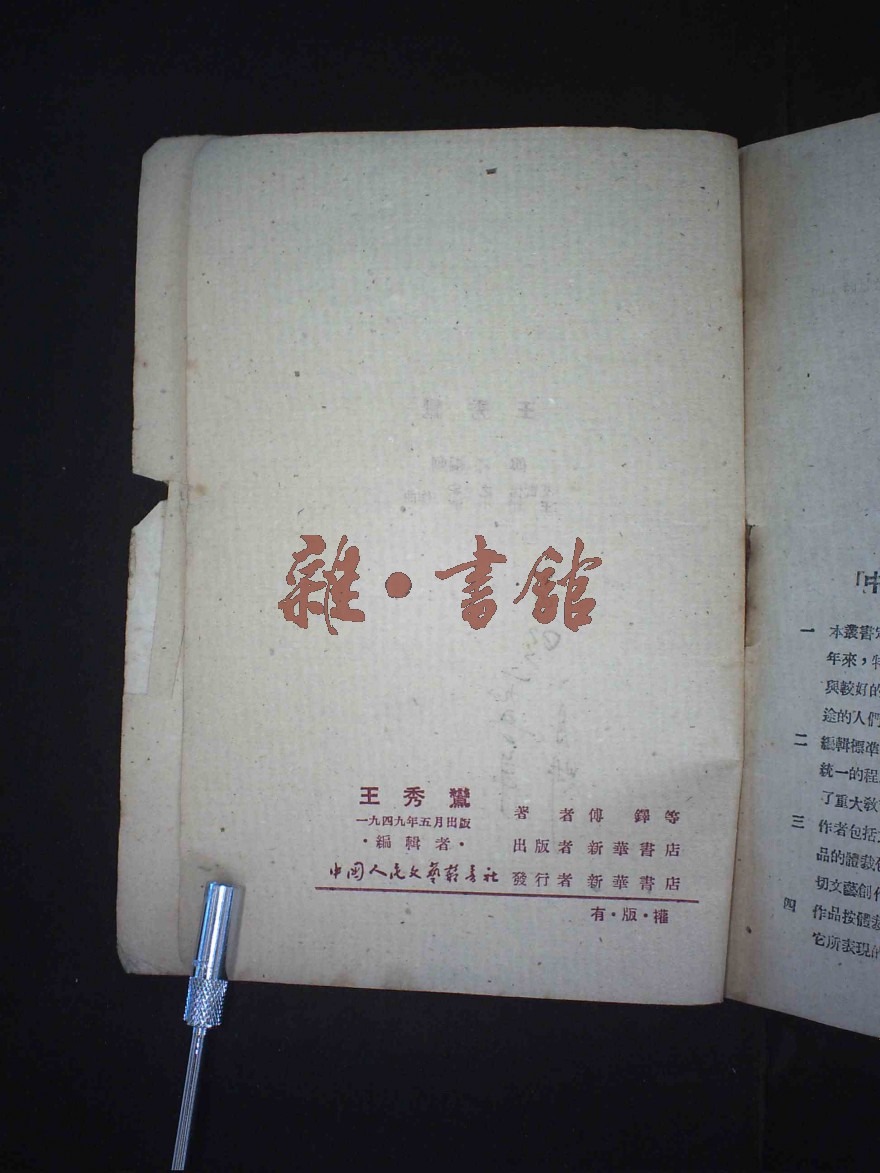 雜・書館
王秀鸞
一九四九年五月出版
・編輯者・
中国人民文藝叢書社
著者 傅鐸等
出版者 新華書店
發行者 新華書店
有・版・權
「中
一 本叢書定
年來，特
與較好的
途的人們
二 編輯標準
統一的程
了重大教
三 作者包括
品的體裁包
切文藝創作
四 作品按體裁
它所表現的